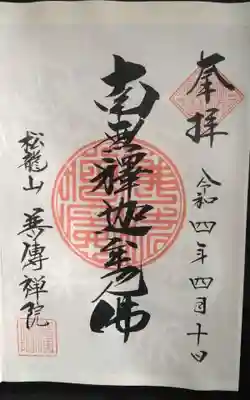 奉拝
令和四年四月十日
南無釋迦牟尼佛
松龍山
英傳禅院